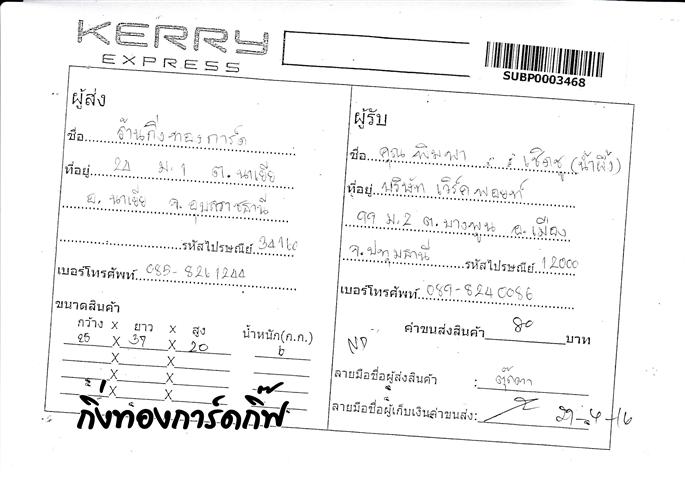 KERRY
EXPRESS
SUBP0003468
ผู้ส่ง
ชื่อ ร้านกิ่งทองการ์ด
ที่อยู่ 24 ม.1 ต.นาเยีย
อ.นาเยีย จ.อุบลราชธานี
รหัสไปรษณีย์ 34160
เบอร์โทรศัพท์ 085-8261244
ขนาดสินค้า
กว้าง X ยาว X สูง น้ำหนัก(ก.ก.)
25 X 37 X 20 6
X X
X X
X X
กิ่งทองการ์ดกิ๊ฟ
ผู้รับ
ชื่อ คุณ พิมพา เชิดชู (น้ำผึ้ง)
ที่อยู่ บริษัท เวิร์คพอยท์
99 ม.2 ต.บางพูน อ.เมือง
จ.ปทุมธานี รหัสไปรษณีย์ 12000
เบอร์โทรศัพท์ 089-8240086
ค่าขนส่งสินค้า 80 บาท
ND
ลายมือชื่อผู้ส่งสินค้า : ตุ๊กตา
ลายมือชื่อผู้เก็บเงินค่าขนส่ง: 29-4-16